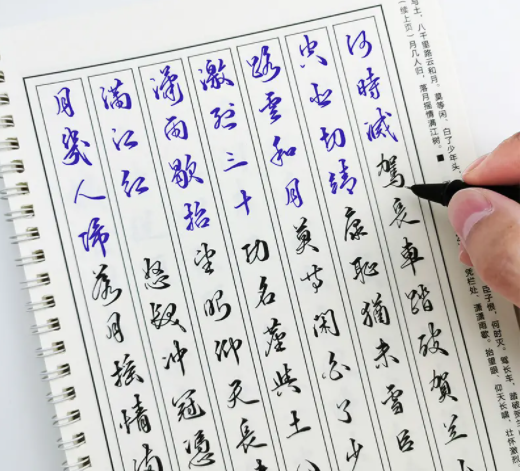 月幾人歸落月搖情滿
滿江紅怒髮沖冠憑
瀟雨歇抬望眼仰天長
激烈三十功名塵與土
路雲和月莫等閒白了少
空悲切靖康恥猶未雪臣
何時滅駕長車踏破賀蘭
（续上页）月几人归，落月摇情满江树。■
凭栏处，潇潇雨歇。抬望眼、仰天长啸，壮怀激烈
与土，八千里路云和月。莫等闲、白了少年头，
臣子恨，何时灭。驾长车，踏破贺